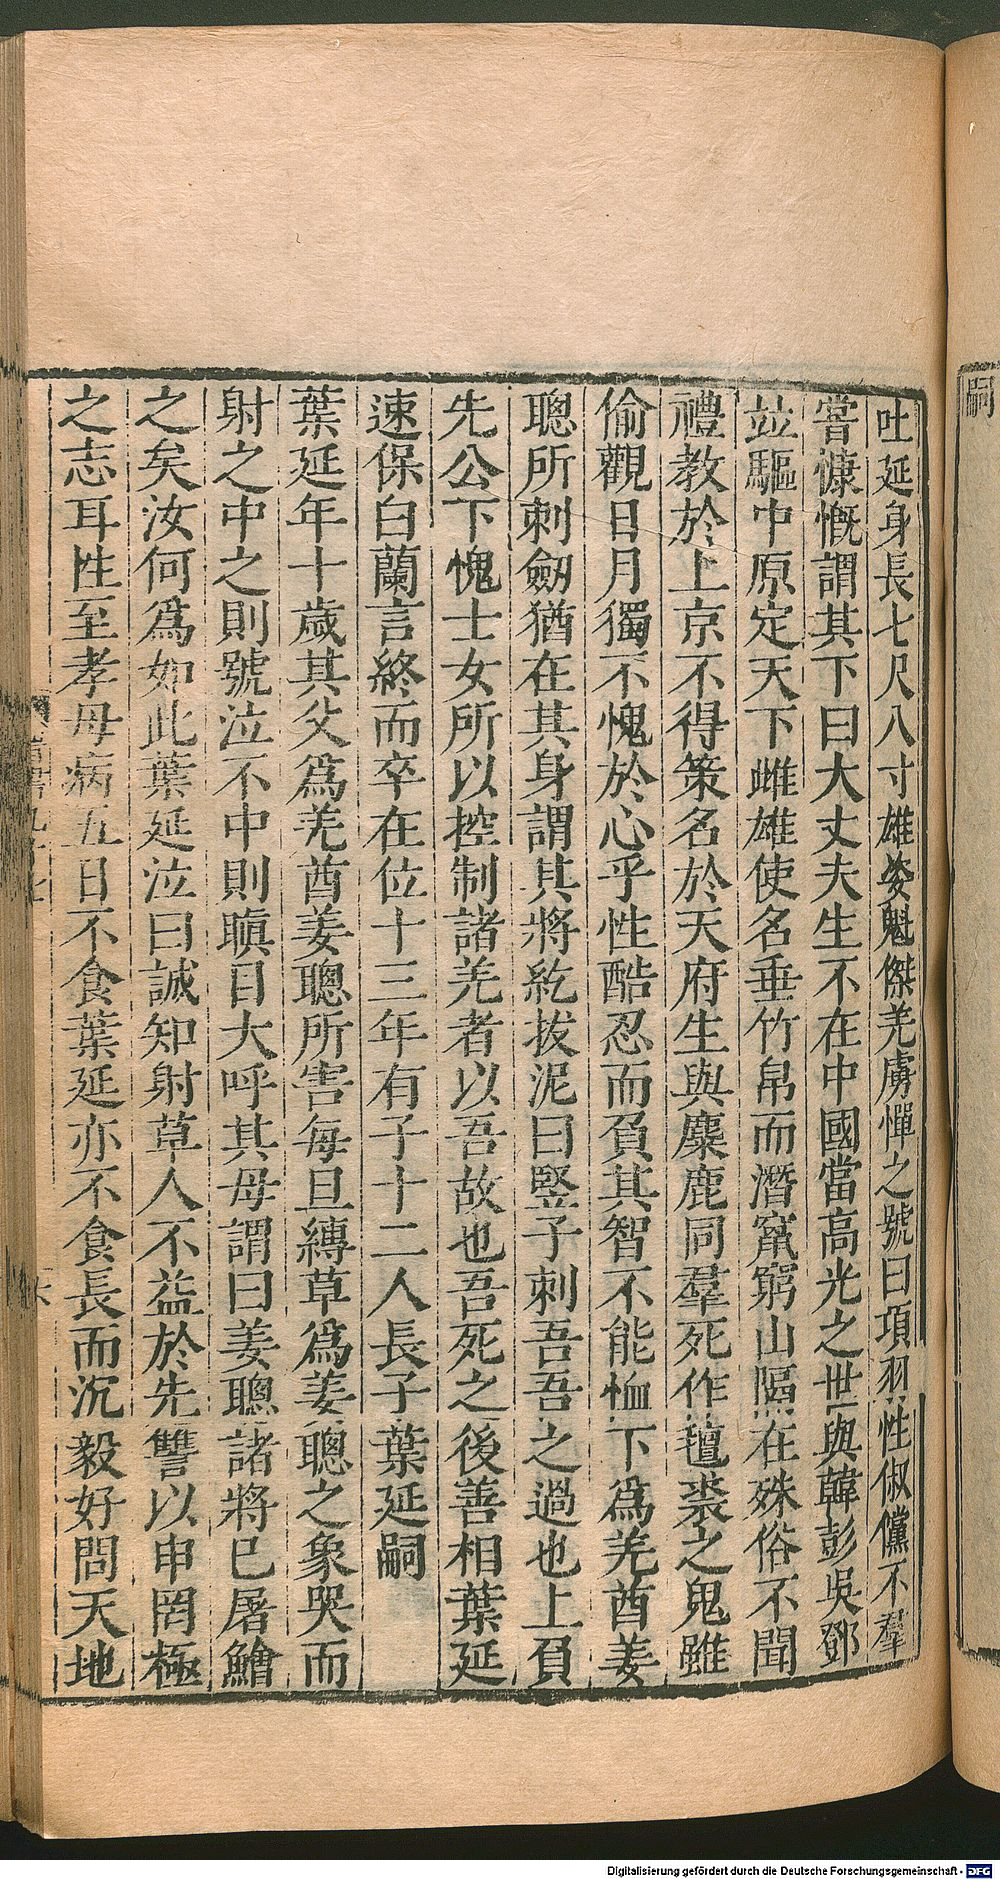 嗣
吐延身長七尺八寸雄姿魁傑羌虜憚之號曰項羽性俶儻不羣
嘗慷慨謂其下曰大丈夫生不在中國當高光之世與韓彭吳鄧
竝驅中原定天下雌雄使名垂竹帛而潛竄窮山隔在殊俗不聞
禮教於上京不得策名於天府生與麋鹿同羣死作氊裘之鬼雖
偷觀日月獨不愧於心乎性酷忍而負其智不能恤下爲羌酋姜
聰所刺劒猶在其身謂其將紇拔泥曰豎子刺吾吾之過也上負
先公下愧士女所以控制諸羌者以吾故也吾死之後善相葉延
速保白蘭言終而卒在位十三年有子十二人長子葉延嗣
葉延年十歲其父爲羌酋姜聰所害每旦縛草爲姜聰之象哭而
射之中之則號泣不中則瞋目大呼其母謂曰姜聰諸將已屠鱠
之矣汝何爲如此葉延泣曰誠知射草人不益於先讐以申罔極
之志耳性至孝母病五日不食葉延亦不食長而沉毅好問天地
Digitalisierung gefördert durch die Deutsche Forschungsgemeinschaft - DFG